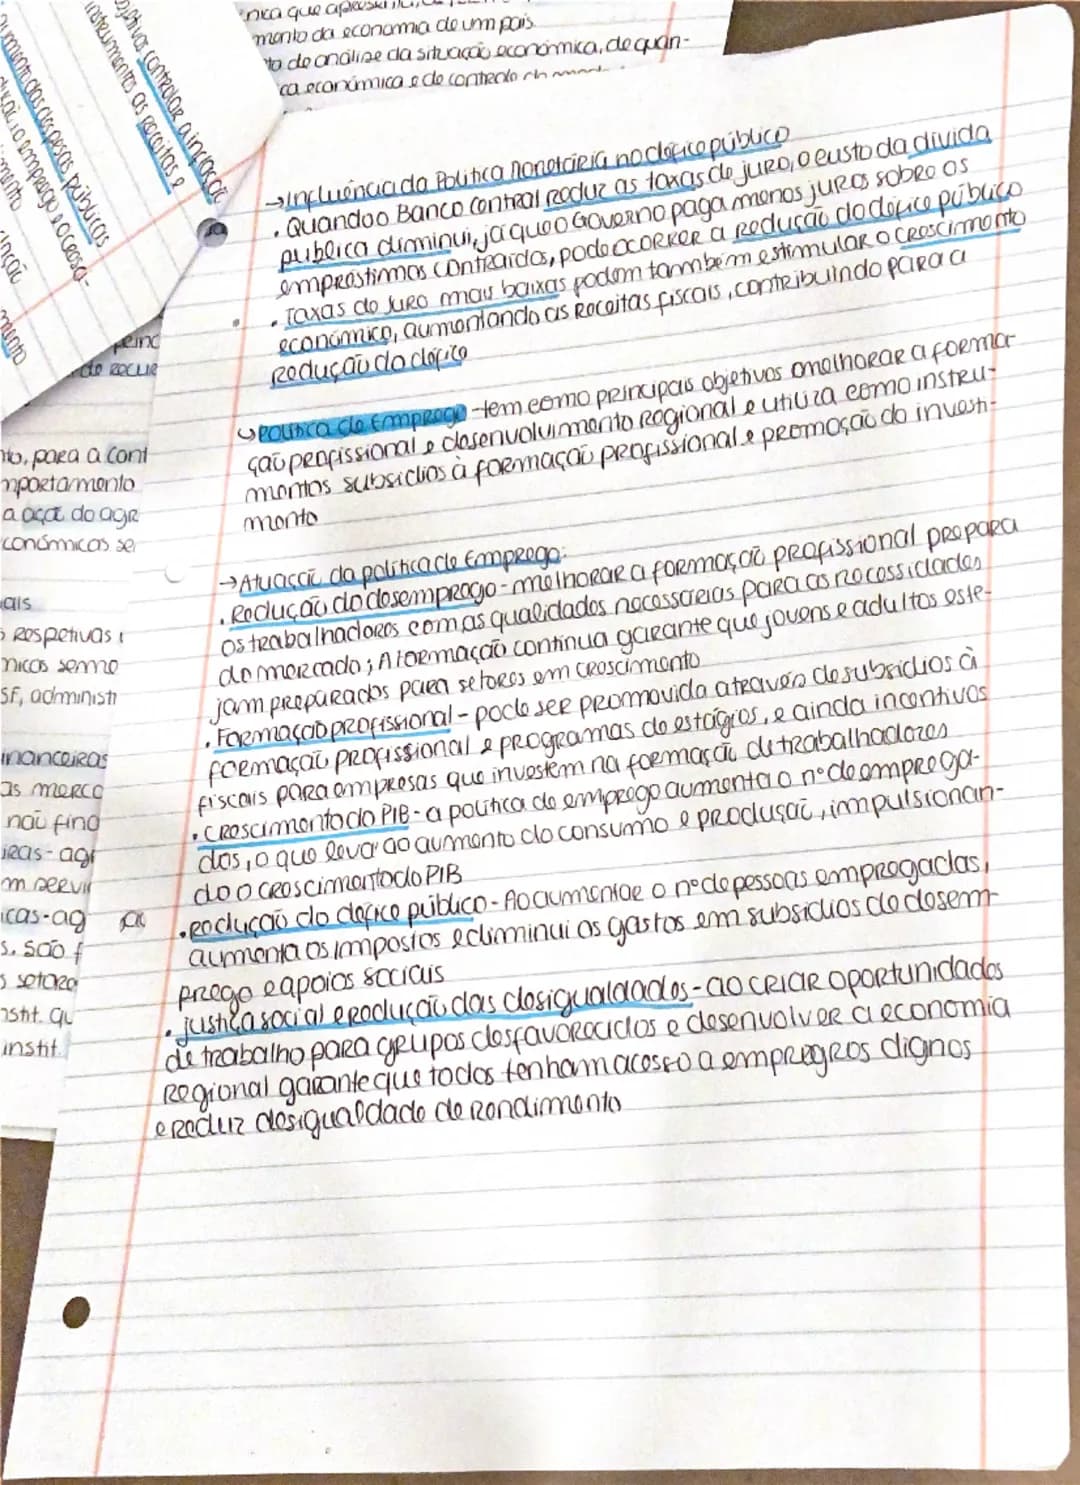 mento da economia de um país.
to de análise da situação económica, de quan-
ca económica e de controlo
objetivos controlar a inflação
instrumentos as receitas e
aumento das despesas públicas
o emprego e o cresci-
→Influência da Política Monetária no défice público
. Quando o Banco Central reduz as taxas de juro, o custo da dívida
pública diminui, já que o Governo paga menos juros sobre os
empréstimos contraídos, pode ocorrer a redução do défice público
. Taxas de juro mais baixas podem também estimular o crescimento
económico, aumentando as receitas fiscais, contribuindo para a
redução do défice
↳Política de Emprego - tem como principais objetivos o melhorar a forma-
ção profissional e desenvolvimento regional e utiliza como instru-
mentos subsídios à formação profissional e promoção do investi-
mento
→Atuação da política de Emprego:
. Redução do desemprego - melhorar a formação profissional prepara
os trabalhadores com as qualidades necessárias para as necessidades
do mercado; A formação contínua garante que jovens e adultos este-
jam preparados para setores em crescimento
. Formação profissional - pode ser promovida através de subsídios à
formação profissional e programas de estágios, e ainda incentivos
fiscais para empresas que investem na formação de trabalhadores
. Crescimento do PIB - a política de emprego aumenta o nº de emprega-
dos, o que leva ao aumento do consumo e produção, impulsionan-
do o crescimento do PIB
. Redução do défice público - Ao aumentar o nº de pessoas empregadas,
aumenta os impostos e diminui os gastos em subsídios de desem-
prego e apoios sociais
. justiça social e redução das desigualdades - ao criar oportunidades
de trabalho para grupos desfavorecidos e desenvolver a economia
regional garante que todos tenham acesso a empregros dignos
e reduz desigualdade de rendimento
to, para a cont
mportamento
a ação do agr
conómicas se
ais
s respetivas
nicas
SF, administ
inanceiras
as merca
não fina
iras - ag
m servi
icas - ag
s. são f
s setore
nstit. qu
instit.